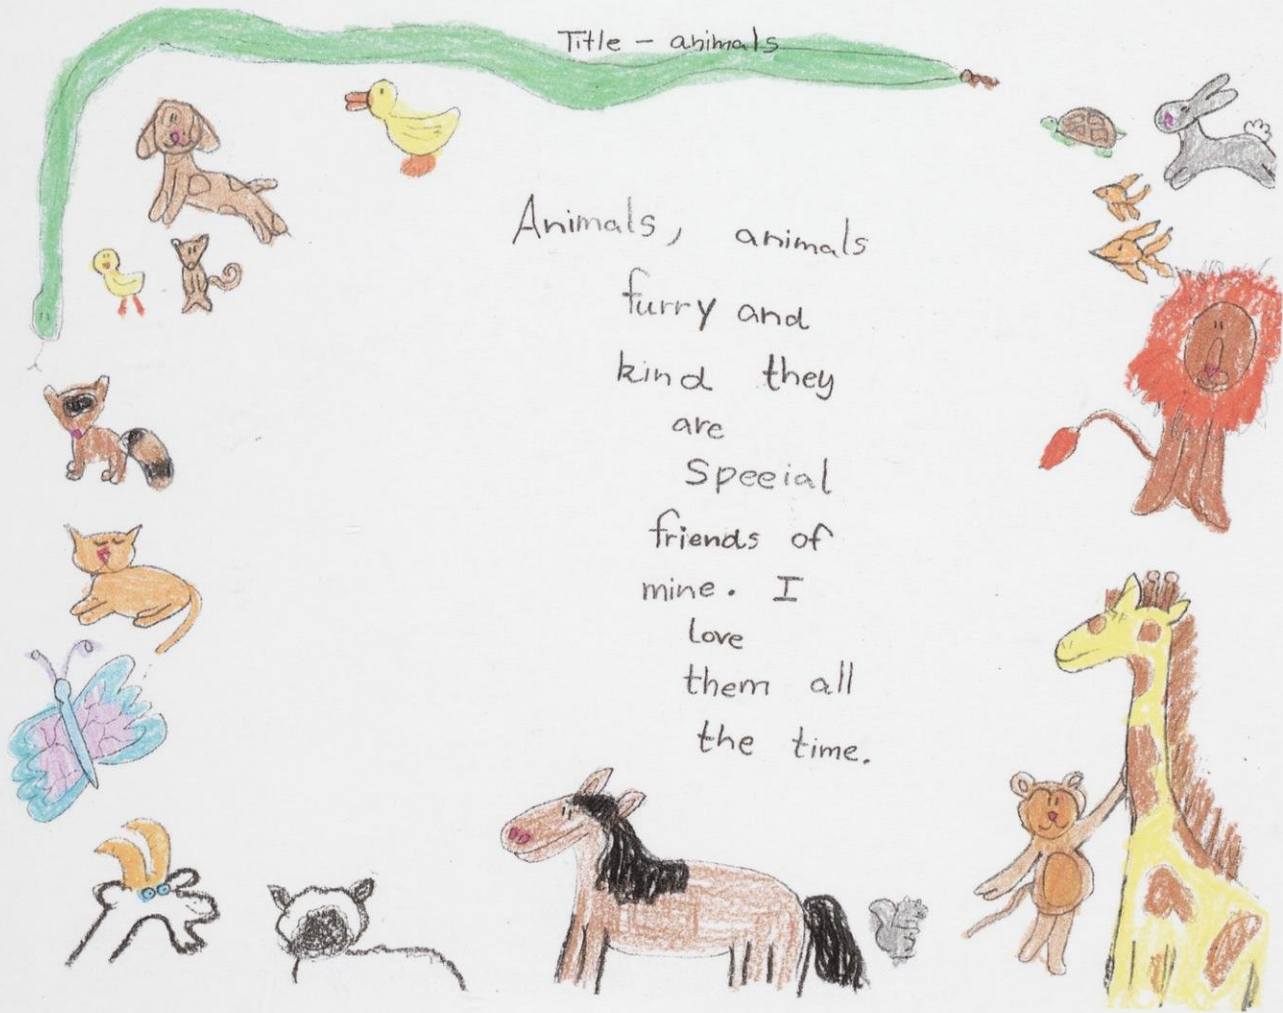 Title - animals
Animals, animals
furry and
kind they
are
Speeial
friends of
mine. I
love
them all
the time.